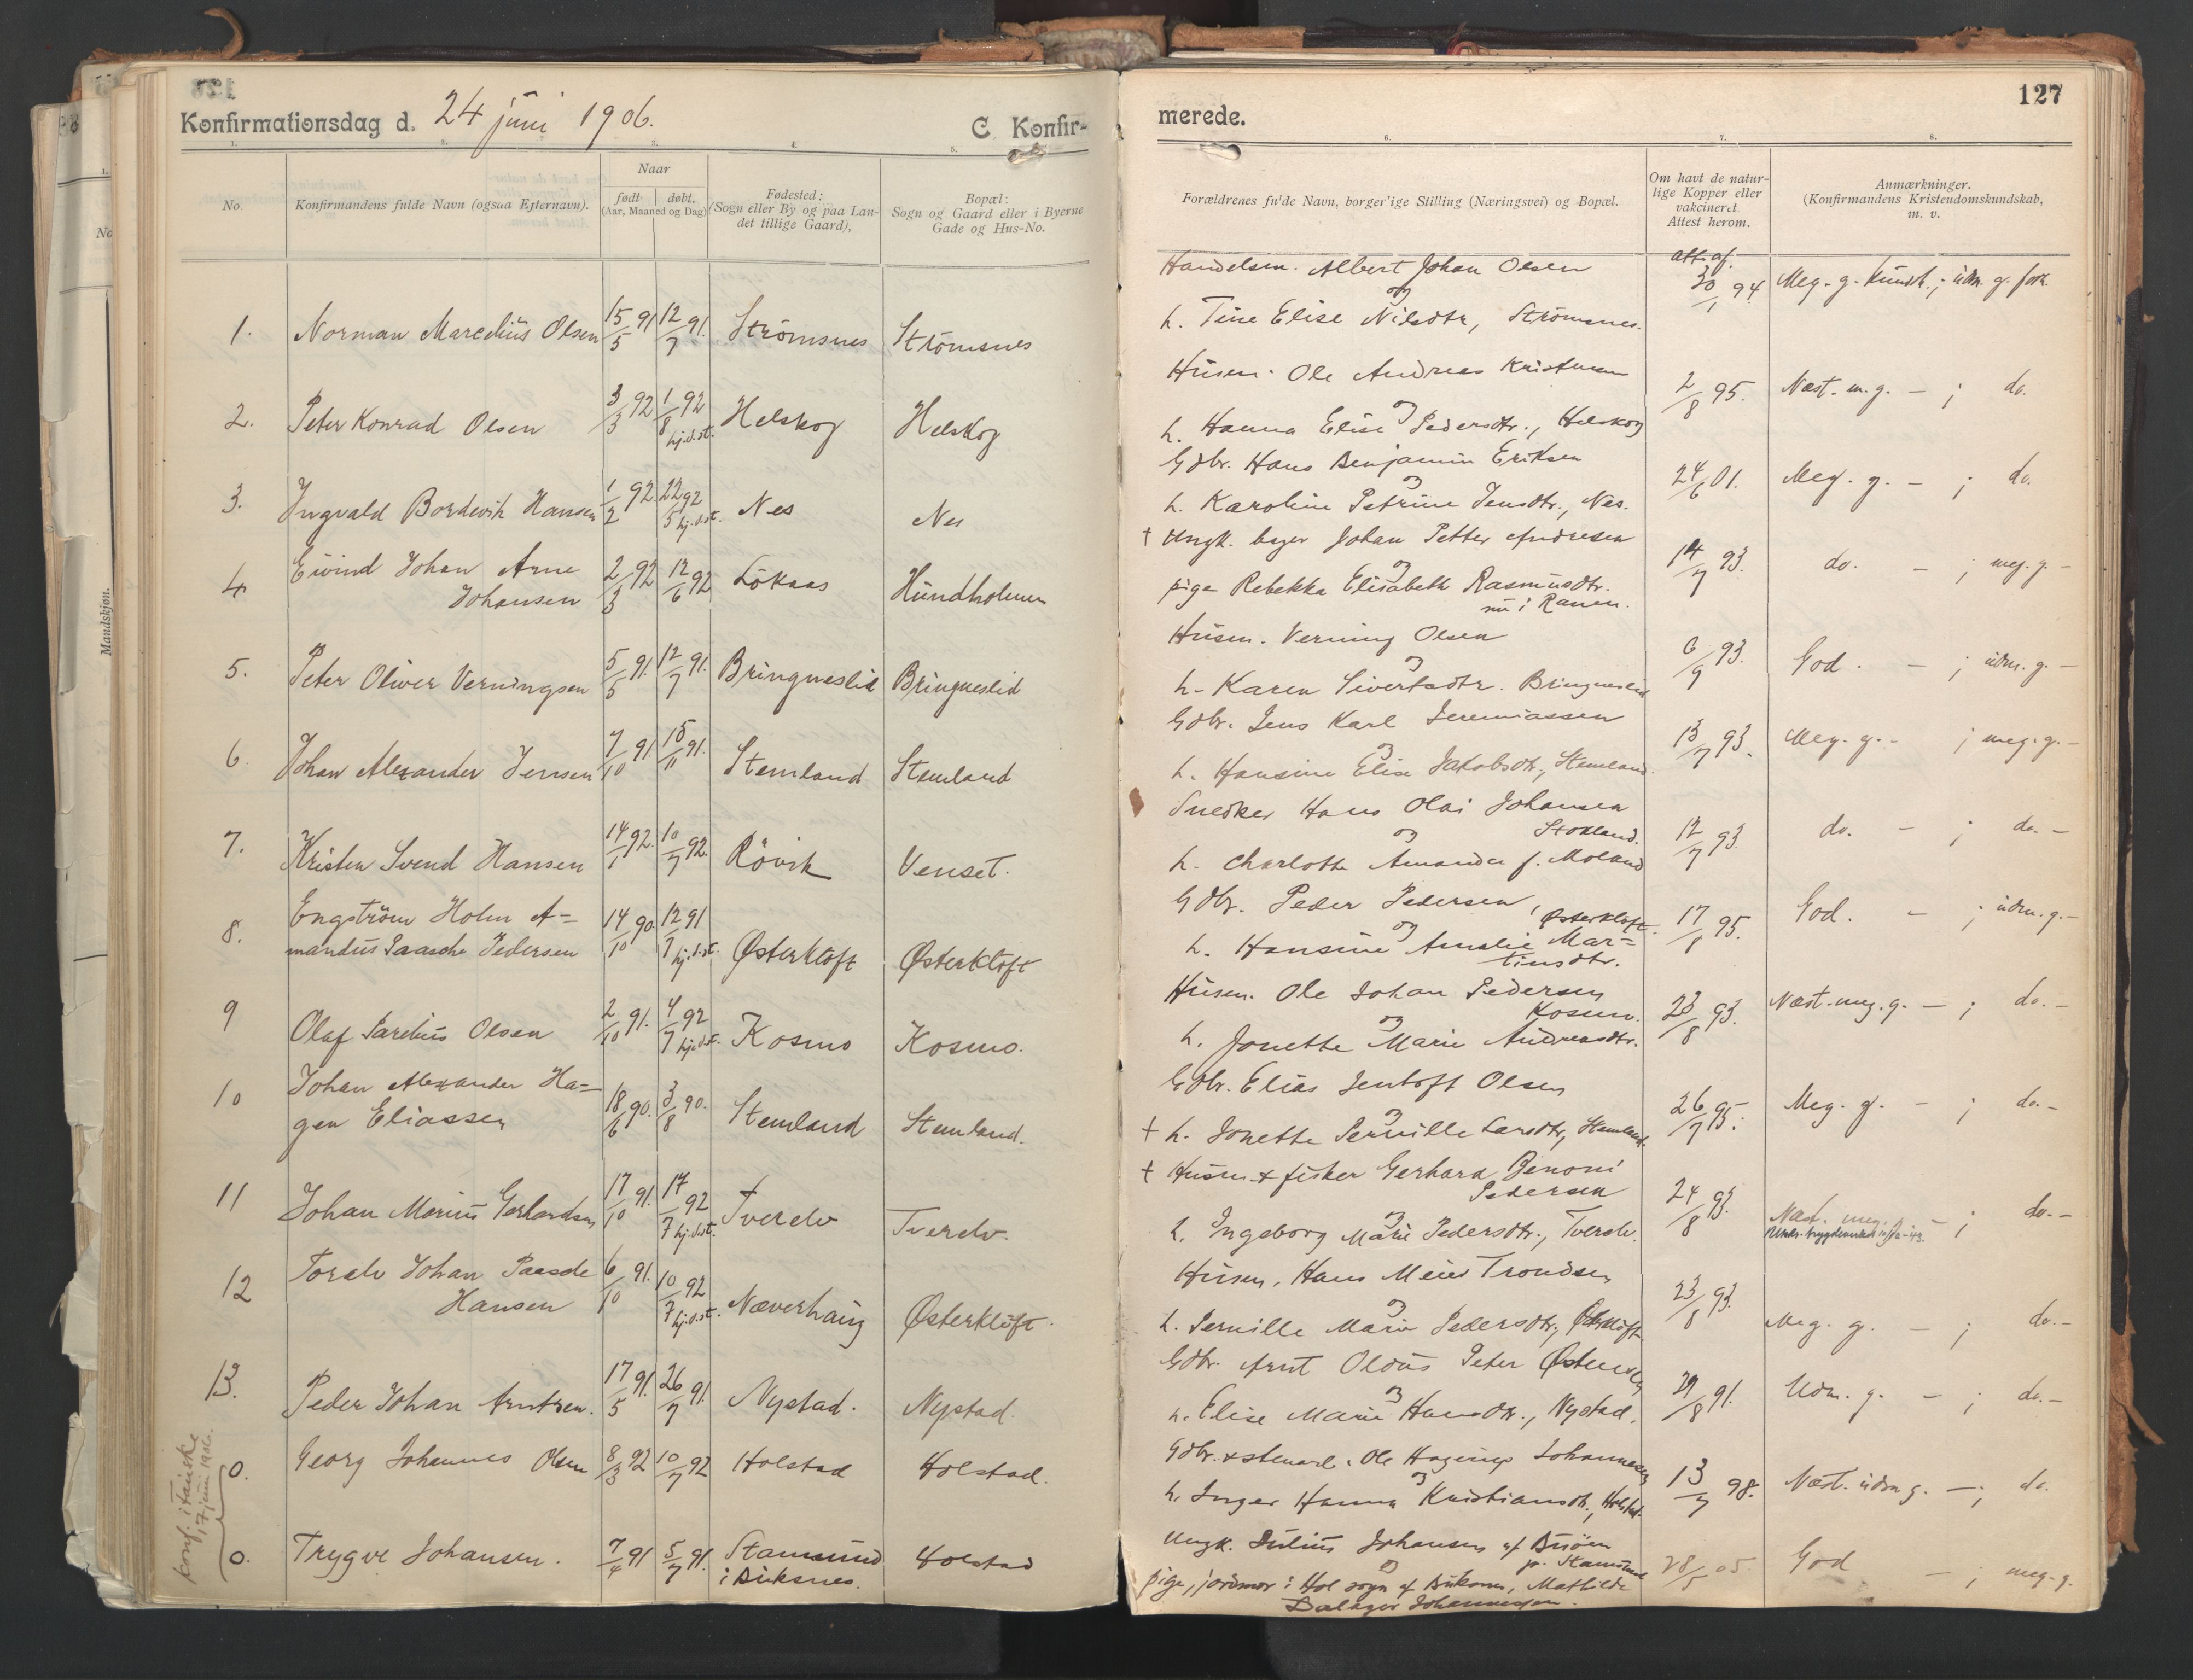 Konfirmationsdag d. 24 juni 1906.
C. Konfir-
merede.
127
1. 2. 3. 4. 5. 6. 7. 8.
No.
Konfirmandens fulde Navn (ogsaa Efternavn).
Naar
født døbt.
(Aar, Maaned og Dag)
Fødested:
(Sogn eller By og paa Lan-
det tillige Gaard),
Bopæl:
Sogn og Gaard eller i Byerne
Gade og Hus-No.
Forældrenes fulde Navn, borgerlige Stilling (Næringsvei) og Bopæl.
Om havt de natur-
lige Kopper eller
vakcineret
Attest herom.
Anmærkninger.
(Konfirmandens Kristendomskundskab,
m. v.
1. Norman Marcelius Olsen 15/5 91 12/7 91. Strömsnes Strömsnes
Handelsm. Albert Johan Olsen
og
h. Tine Elise Nilsdtr, Strömsnes.
att. af.
30/1 94 Meg. g. kundsk.; udm. g. forh.
2. Peter Konrad Olsen 3/3 92 1/8 92 hj.d.st. Helskog Helskog
Husm. Ole Andreas Kristensen
og
h. Hanna Elise Pedersdtr., Helskog
2/8 95. Næst. m. g. – ; do.
3. Ingvald Bordevik Hansen 1/2 92. 22/5 92 hj.d.st. Nes Nes
Gdbr. Hans Benjamin Eriksen
og
h. Karoline Petrine Jensdtr., Nes.
24/6 01. Meg. g. – ; do.
4 Eivind Johan Arne
Johansen 2/3 92 12/6 92 Lökaas Hundholmen
† Ungk. bager Johan Petter Andresen
og
pige Rebekka Elisabeth Rasmusdtr.
nu i Ranen.
14/7 93. do. – ; meg. g. –
5. Peter Oliver Verningsen 5/5 91. 12/7 91. Bringneslid Bringneslid
Husm. Verning Olsen
og
h. Karen Sivertsdtr. Bringneslid
6/9 93. God. – ; udm. g. –
6 Johan Alexander Jensen 7/10 91. 15/11 91. Stemland Stemland
Gdbr. Jens Karl Jeremiassen
og
h. Hansine Elise Jakobsdtr., Stemland.
13/7 93. Meg. g. – ; meg. g. –
7. Kristen Svend Hansen 14/1 92. 10/7 92. Rövik Venset.
Snedker Hans Olai Johansen
og Stokland.
h. Charlotte Amanda f. Moland
12/7 93. do. – ; do. –
8. Engström Holm A-
mandus Paasche Pedersen 14/10 90. 12/7 91 hj.d.st. Østerkløft Østerkløft
Gdbr. Peder Pedersen,
og Østerkløft.
h. Hansine Amalie Mar-
tinsdtr.
17/8 95. God. – ; udm. g. –
9 Olaf Parelius Olsen 2/10 91. 4/7 92 hj.d.st. Kosmo Kosmo.
Husm. Ole Johan Pedersen
og Kosmo.
h. Jonette Marie Andreasdtr.
23/8 93. Næst. meg. g. – ; do. –
10 Johan Alexander Ha-
gen Eliassen 18/6 90. 3/8 90. Stemland Stemland.
Gdbr. Elias Jentoft Olsen
og
† h. Jonette Pernille Larsdtr, Stemland.
26/7 95. Meg. g. – ; do. –
11 Johan Marius Gerhardsen 17/10 91. 17/7 92 hj.d.st. Tverelv Tverelv.
† Husm. & fisker Gerhard Benoni
Pedersen
og
h. Ingeborg Marie Pedersdtr., Tverelv.
24/8 93. Næst. meg. g. – ; do. –
12 Toralv Johan Paasche
Hansen 6/10 91. 10/7 92 hj.d.st. Næverhaug Østerkløft.
Husm. Hans Meier Trondsen
og
h. Pernille Marie Pedersdtr, Østerkløft
23/8 93. Meg. g. – ; do. –
13. Peder Johan Arntsen. 17/5 91. 26/7 91. Nystad. Nystad.
Gdbr. Arnt Oldus Peter Østensen
og
h. Elise Marie Hansdtr., Nystad.
29/8 91. Udm. g. – ; do. –
konf. i Fauske
17 juni 1906.
0. Georg Johannes Olsen 8/3 92 10/7 92 Holstad Holstad.
Gdbr. & stenarb. Ole Hagerup Johannesen
og
h. Inger Hanna Kristiansdtr., Holstad.
13/7 98. Næst. udm g. – ; do.
0. Trygve Johansen. 7/4 91 5/7 91. Stamsund
i Buksnes. Holstad
Ungk. Julius Johansen af
og Stamsund
pige, jordmor i Hol sogn af Buksnes, Mathilde
Dalager Johannessen.
28/5 05. God – ; meg. g.
Mandskjøn.